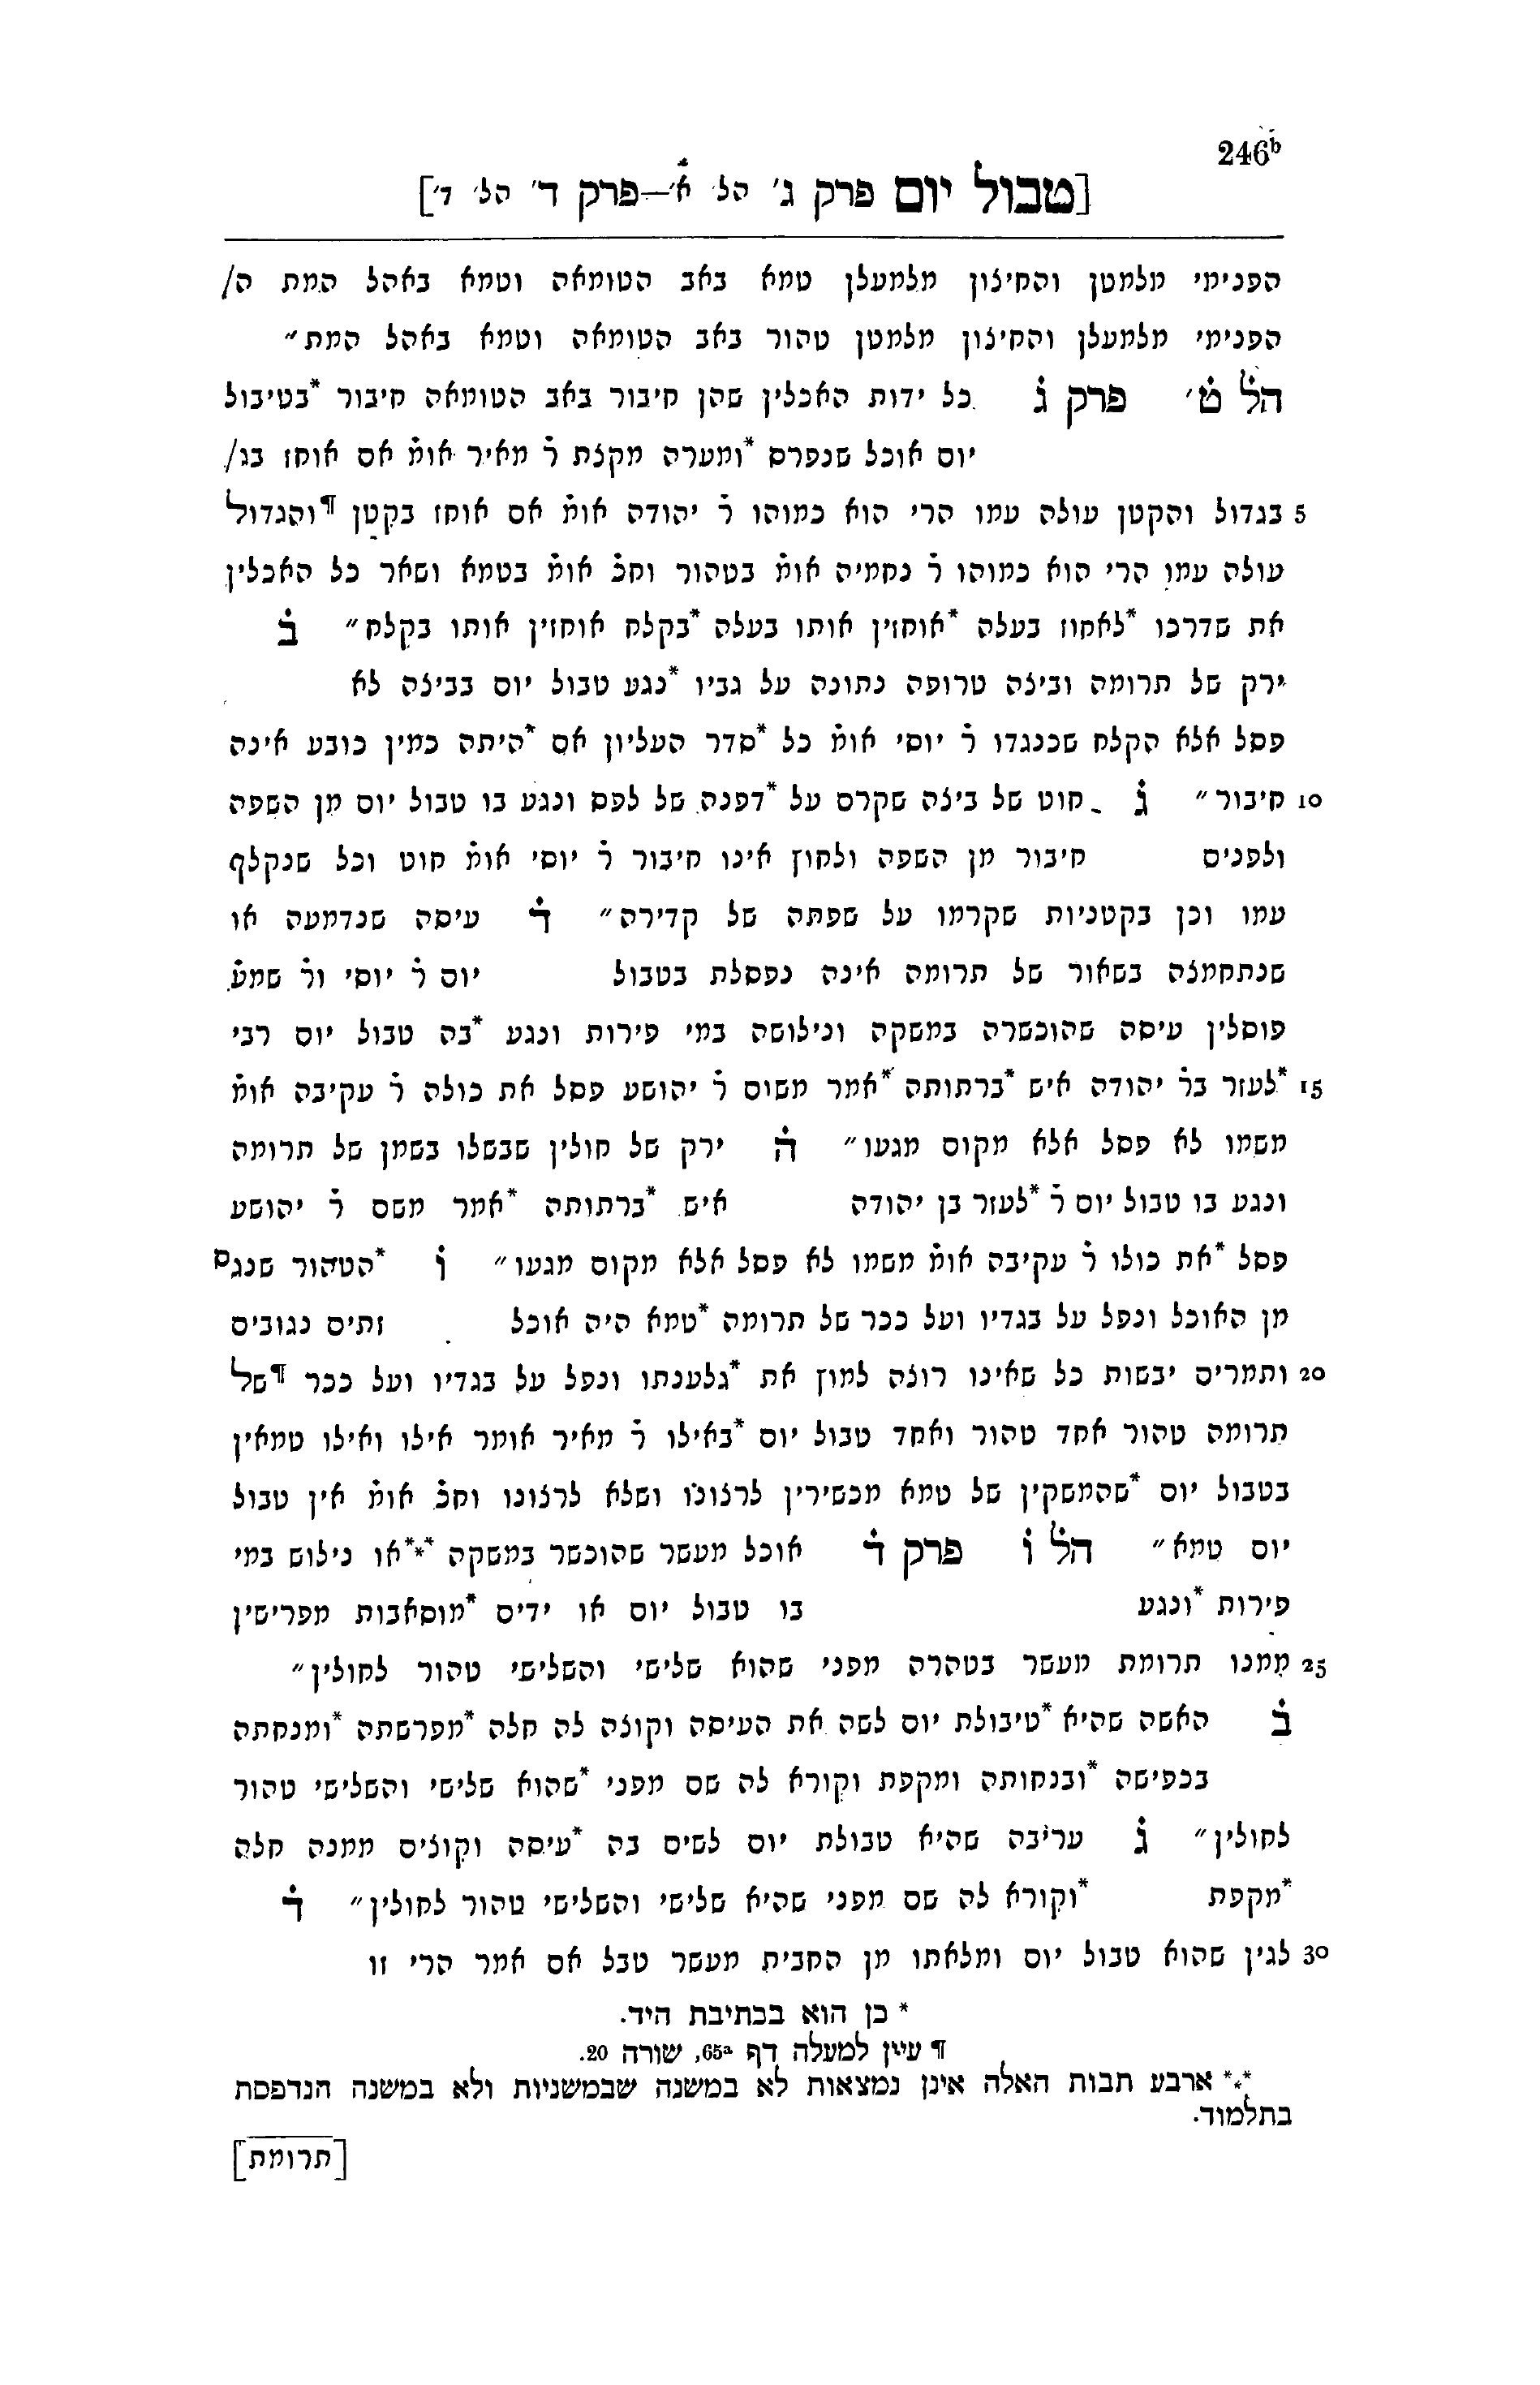 246b
[טבול יום פרק ג׳ הל׳ א׳—פרק ד׳ הל׳ ד׳]
הפנימי מלמטן והחיצון מלמעלן טמא באב הטומאה וטמא באהל המת ה/
הפנימי מלמעלן והחיצון מלמטן טהור באב הטומאה וטמא באהל המת״
הל ט׳ פרק ג כל ידות האכלין שהן חיבור באב הטומאה חיבור *בטיבול
יום אוכל שנפרס *ומערה מקצת ר̇ מאיר אומ̇ אם אוחז בג/
5 בגדול והקטן עולה עמו הרי הוא כמוהו ר̇ יהודה אומ̇ אם אוחז בקטן ¶והגדול
עולה עמו הרי הוא כמוהו ר̇ נחמיה אומ̇ בטהור וחכ̇ אומ̇ בטמא ושאר כל האכלין
את שדרכו *לאחוז בעלה *אוחזין אותו בעלה *בקלח אוחזין אותו בקלח״ ב̇
ירק של תרומה וביצה טרופה נתונה על גביו *נגע טבול יום בביצה לא
פסל אלא הקלח שכנגדו ר̇ יוסי אומ̇ כל *סדר העליון אם *היתה כמין כובע אינה
10 חיבור״ ג̇ חוט של ביצה שקרם על *דפנה של לפס ונגע בו טבול יום מן השפה
ולפנים חיבור מן השפה ולחוץ אינו חיבור ר̇ יוסי אומ̇ חוט וכל שנקלף
עמו וכן בקטניות שקרמו על שפתה של קדירה״ ד̇ עיסה שנדמעה או
שנתחמצה בשאור של תרומה אינה נפסלת בטבול יום ר̇ יוסי ור̇ שמע̇
פוסלין עיסה שהוכשרה במשקה ונילושה במי פירות ונגע *בה טבול יום רבי
15 *לעזר בר̇ יהודה איש *ברתותה *אמר משום ר̇ יהושע פסל את כולה ר̇ עקיבה אומ̇
משמו לא פסל אלא מקום מגעו״ ה̇ ירק של חולין שבשלו בשמן של תרומה
ונגע בו טבול יום ר̇ *לעזר בן יהודה איש *ברתותה *אמר משם ר̇ יהושע
פסל *את כולו ר̇ עקיבה אומ̇ משמו לא פסל אלא מקום מגעו״ ו̇ *הטהור שנגס
מן האוכל ונפל על בגדיו ועל ככר של תרומה *טמא היה אוכל זתים נגובים
20 ותמרים יבשות כל שאינו רוצה למוץ את *גלענתו ונפל על בגדיו ועל ככר ¶של
תרומה טהור אחד טהור ואחד טבול יום *באילו ר̇ מאיר אומר אילו ואילו טמאין
בטבול יום *שהמשקין של טמא מכשירין לרצונו ושלא לרצונו וחכ̇ אומ̇ אין טבול
יום טמא״ הל ו̇ פרק ד̇ אוכל מעשר שהוכשר במשקה ***או נילוש במי
פירות *ונגע בו טבול יום או ידים *מוסאבות מפרישין
25 ממנו תרומת מעשר בטהרה מפני שהוא שלישי והשלישי טהור לחולין״
ב̇ האשה שהיא *טיבולת יום לשה את העיסה וקוצה לה חלה *מפרשתה *ומנחתה
בכפישה *ובנחותה ומקפת וקורא לה שם מפני *שהוא שלישי והשלישי טהור
לחולין״ ג̇ עריבה שהיא טבולת יום לשים בה *עיסה וקוצים ממנה חלה
*מקפת *וקורא לה שם מפני שהיא שלישי והשלישי טהור לחולין״ ד̇
30 לגין שהוא טבול יום ומלאתו מן החבית מעשר טבל אם אמר הרי זו
* כן הוא בכתיבת היד.
¶ עיין למעלה דף 65a, שורה 20.
*** ארבע תבות האלה אינן נמצאות לא במשנה שבמשניות ולא במשנה הנדפסת
בתלמוד.
[תרומת]